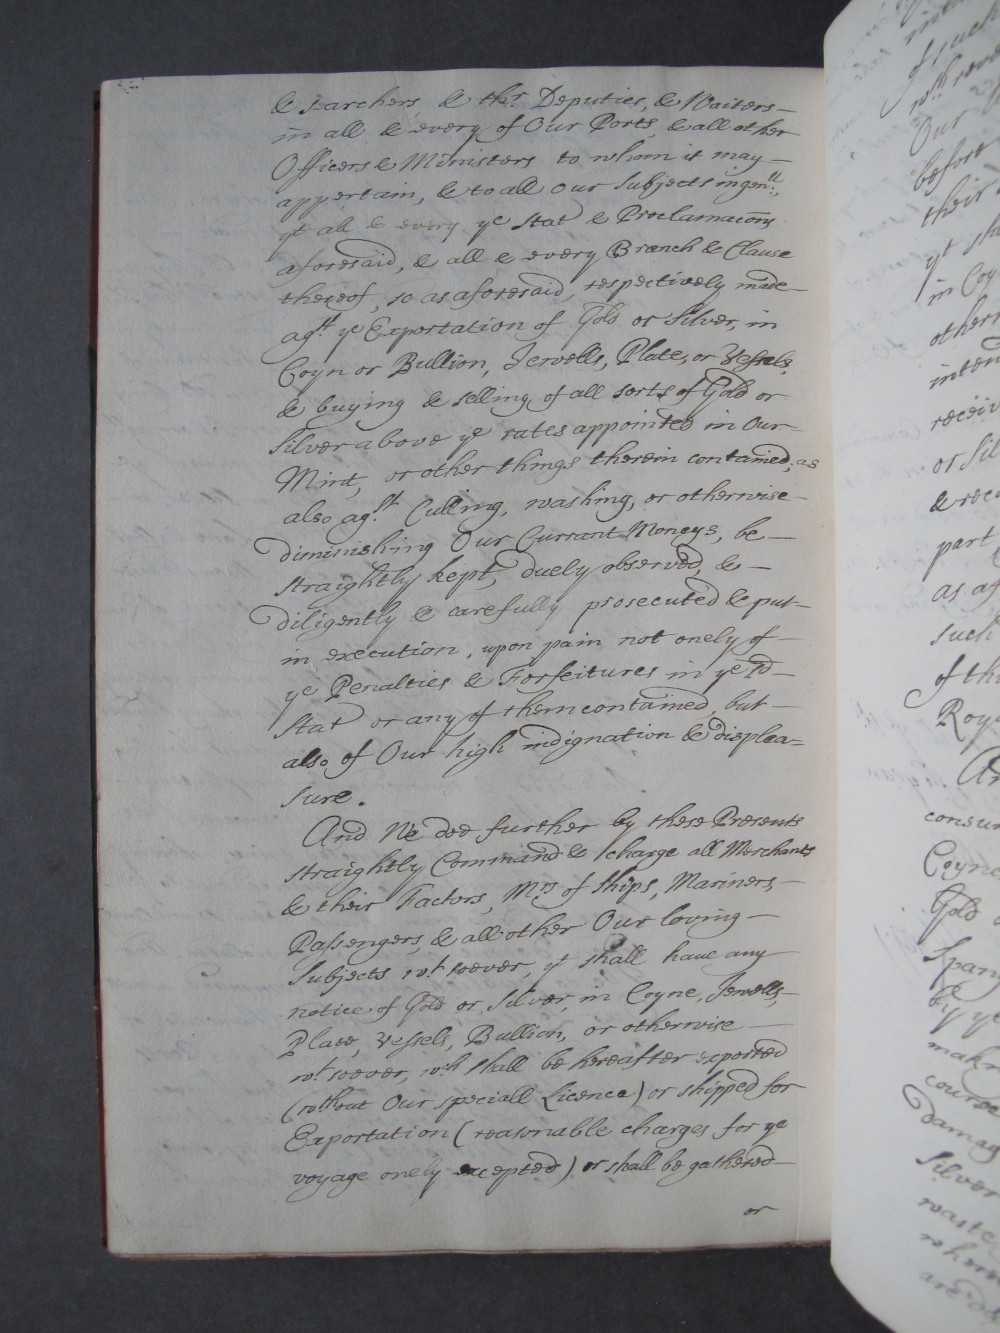 & searchers & thr Deputies, & Waiters
in all & every of Our Ports, & all other
Officers & Ministers to whom it may
appertain, & to all our subjects in genll,
yt all & every ye Stat & Proclamacons
aforesaid, & all & every Branch & Clause
thereof, so as aforesaid, respectively made
agst ye Exportation of Gold or Silver, in
Coyn or Bullion, Jewells, Plate, or Vessels,
& buying & selling of all sorts of Gold or
Silver above ye rates appointed in Our
Mint, or other things therein contained; as
also agst Culling, washing, or otherwise
diminishing Our Currant Moneys, be
straightly kept, duely observed, &
diligently & carefully prosecuted & put
in execution, upon pain not onely of
ye Penalties & Forfeitures in ye sd
Stat or any of them contained, but
also of Our high indignation & displea=
sure.
And We doe further by these Presents
straightly Command & charge all Merchants
& their Factors, Mrs of Ships, Mariners,
Passengers, & all other Our loving
Subjects wt soever, yt shall have any
notice of Gold or, Silver, in Coyne, Jewells,
Plate, Vessels, Bullion, or otherwise
wt soever, wch shall be hereafter exported
(without Our speciall Licence) or shipped for
Exportation (reasonable charges for ye
voyage onely excepted) or shall be gathered
or
of such
Our
before
their
yt sha
in Coy
others
receiv
or Sil
& rec
part
as af
such
of th
Roy
consu
Coyne,
Gold
Span
by ye
makin
course
damag
Silver
waste